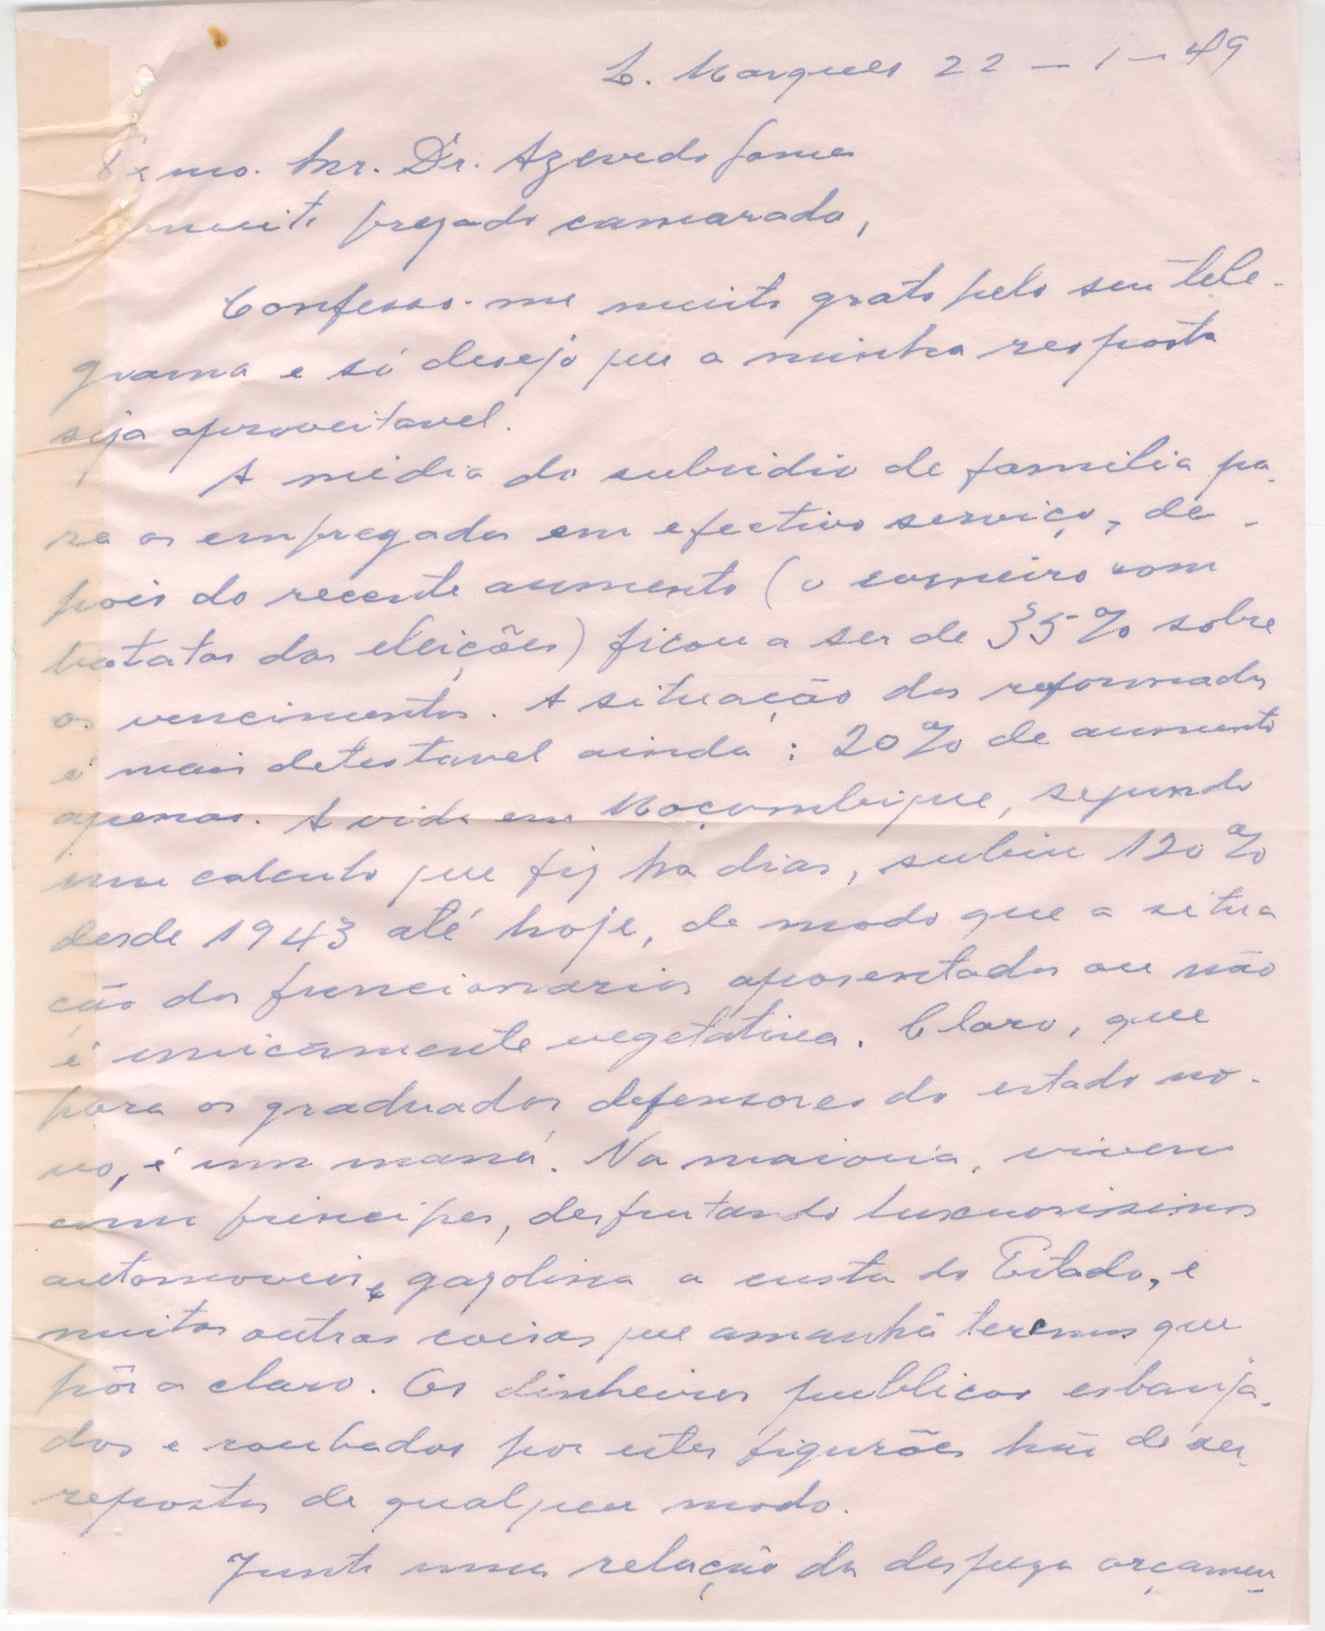 L. Marques 22-1-49
Exmo. Snr. Dr. Azevedo Gomes
muito prezado camarada,
Confesso-me muito grato pelo seu tele-
grama e só desejo que a minha resposta
seja aproveitavel.
A média do subsidio de familia pa-
ra os empregados em efectivo serviço, de-
pois do recente aumento (o carneiro com
batatas das eleições) ficou a ser de 35% sobre
os vencimentos. A situação dos reformados
é mais detestavel ainda: 20% de aumento
apenas. A vida em Moçambique, segundo
um calculo que fiz ha dias, subiu 120%
desde 1943 até hoje, de modo que a situa
ção dos funcionarios aposentados ou não
é unicamente vegetativa. Claro, que
para os graduados defensores do estado no-
vo, é um maná. Na maioria, vivem
como principes, desfrutando luxuosissimos
automoveis e gazolina a custa do Estado, e
muitas outras coisas que amanhã teremos que
pôr a claro. Os dinheiros publicos esbanja-
dos e roubados por estes figurões hão de ser
repostos de qualquer modo.
Junto uma relação da despeza orçamen-